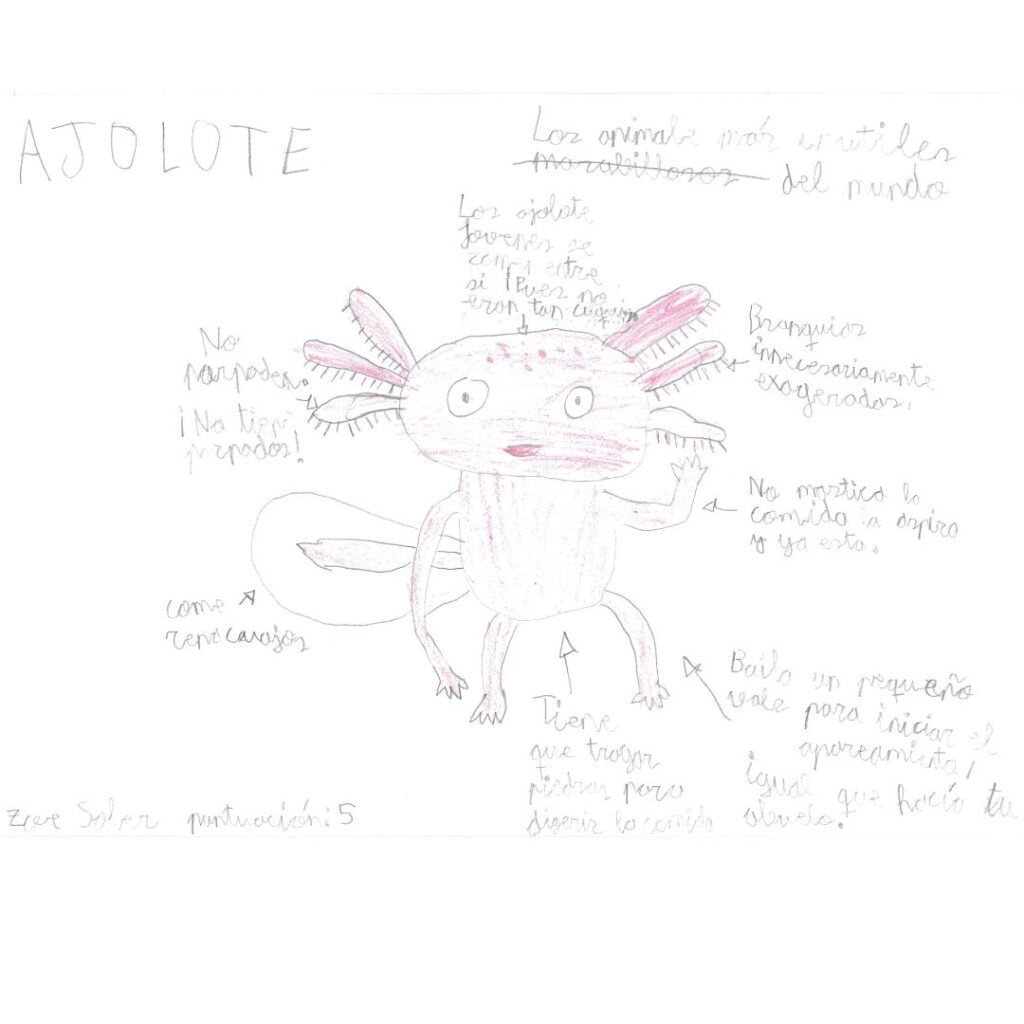 AJOLOTE
Los animale más inutiles
marabillosos del mundo
Los ajolote
jovenes se
comen entre
si ¡Pues no
eran tan cuquis
No
parpadea.
¡No tien
parpados!
Branquios
innecesariamente
exageradas.
No mastica la
comida la aspira
y ya esta.
come
renacuajos
Tiene
que tragar
piedras para
digerir la comida
Baila un pequeño
vals para iniciar el
apareamiento!
igual que hacía tu
abuelo.
Soler puntuación: 5